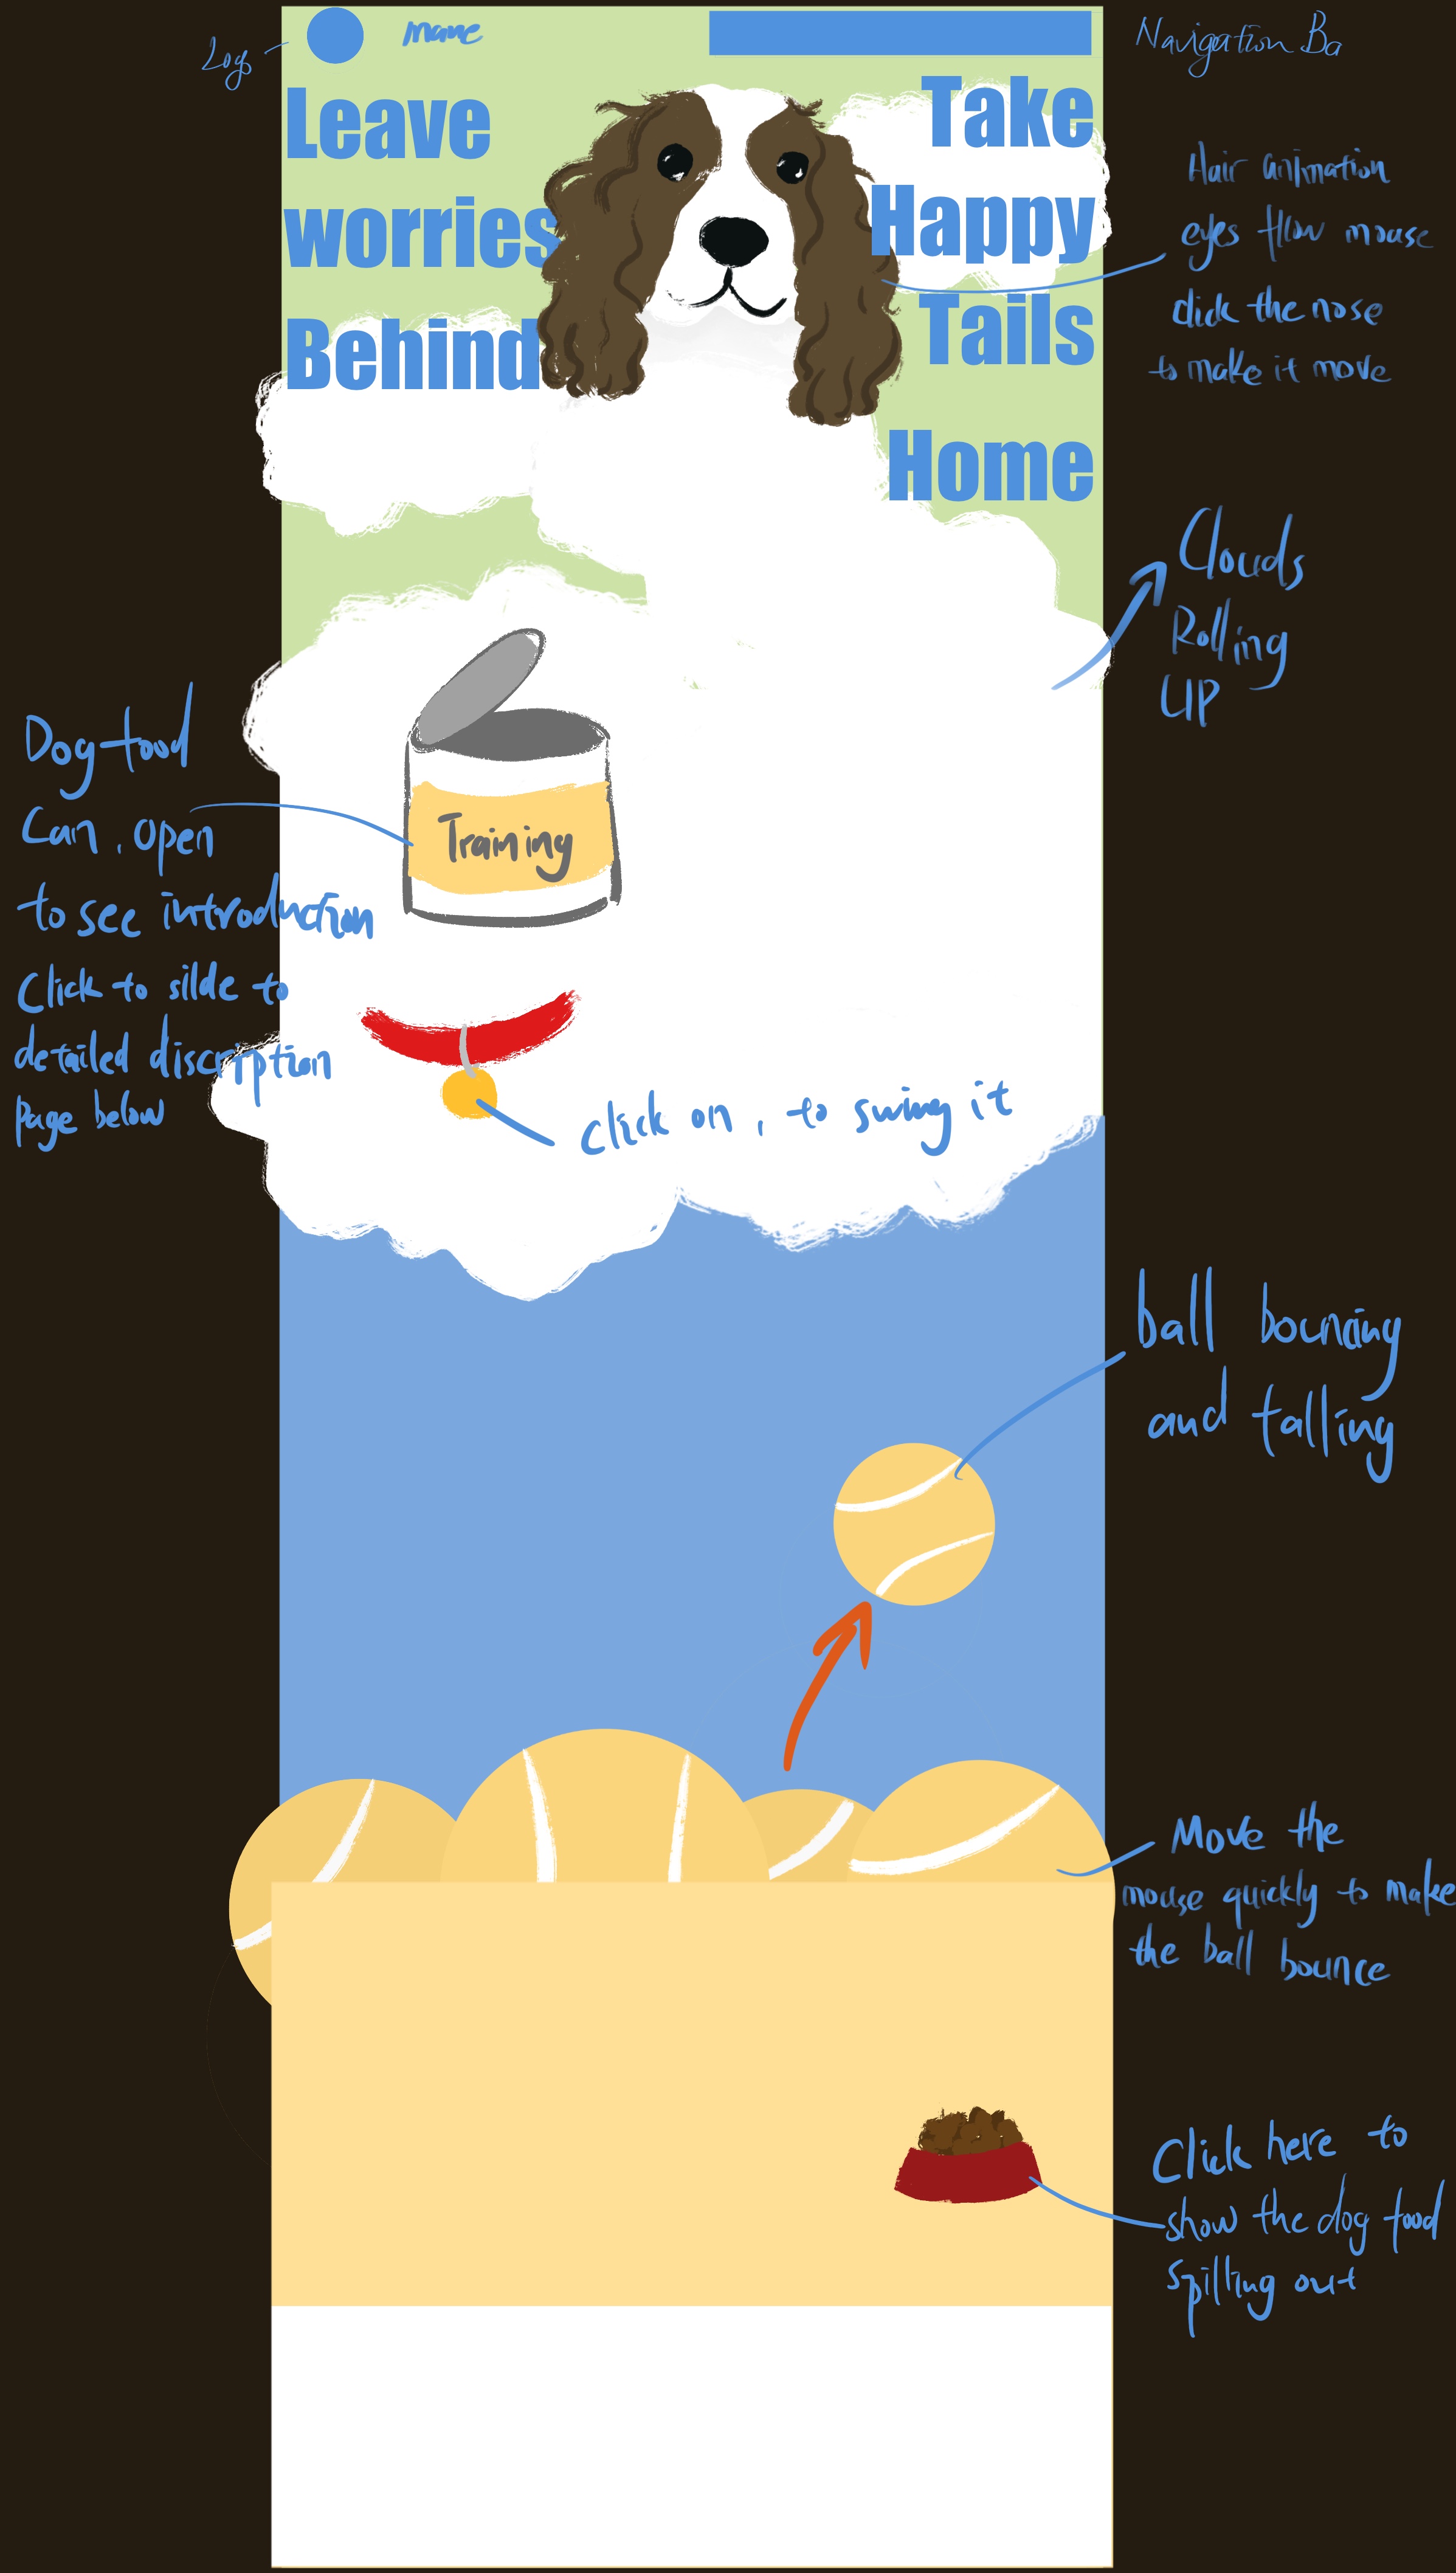 Logo
mame
Navigation Ba
Leave
worries
Behind
Take
Happy
Tails
Home
Hair animation
eyes flow mouse
click the nose
to make it move
Clouds
Rolling
UP
Dog food
Can, open
to see introduction
Click to silde to
detailed discription
page below
Training
click on, to swing it
ball bouncing
and falling
Move the
mouse quickly to make
the ball bounce
Click here to
show the dog food
spilling out